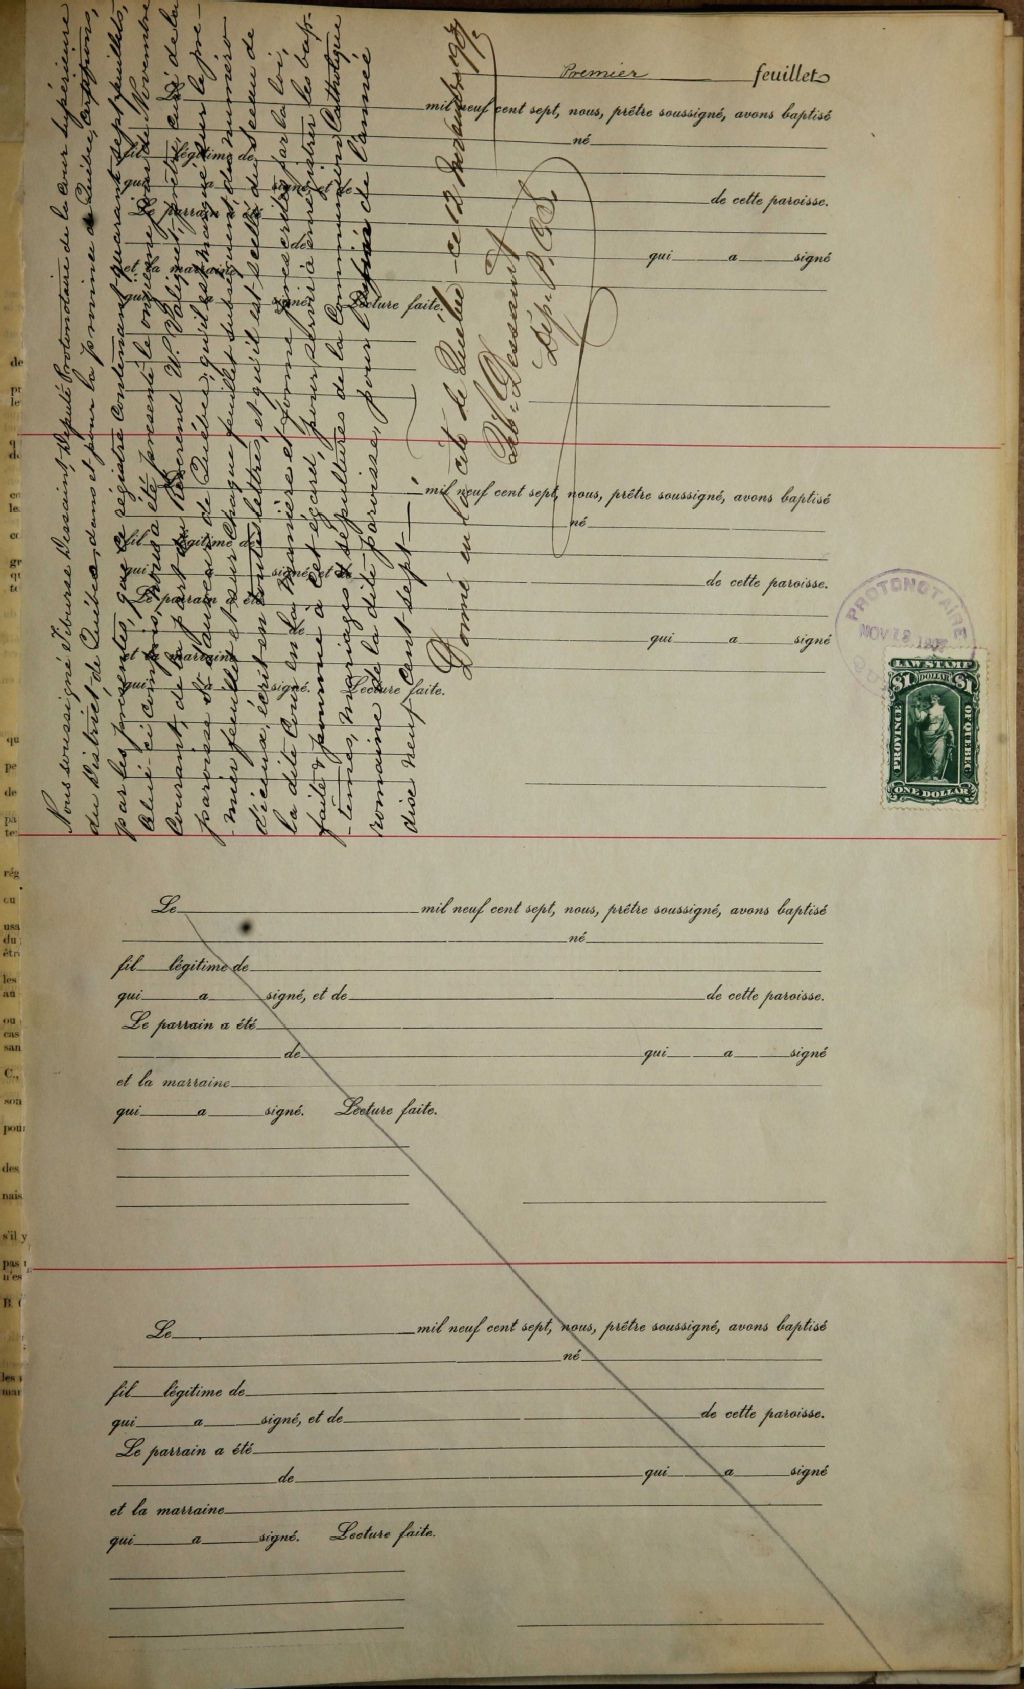 Premier feuillet
Nous soussigné Tiburse Dessaint, Député Protonotaire de la Cour Supérieure
du District de Québec, dans et pour la province de Québec, certifions,
par les présentes, que ce régistre contenant quarante sept feuillets,
celui-ci compris, nous a été présenté le onzième jour de Novembre
Courant, de la part du Révérend U. Valiquet, prêtre, curé de la
paroisse St Sauveur de Québec; qu'il est marqué sur le pre-
-mier feuillet et sur chaque feuillet subséquent, du numéro
d'iceux, écrit en toutes lettres, et qu'il est scellé du Sceau de
la dite Cour en la manière et forme prescrites par la loi,
faite & pourvue à cet égard, pour servir à enregistrer les bap-
-têmes, mariages & sépultures de la Communion Catholique
romaine de la dite paroisse, pour partie de l'année
dise neuf cent sept
Donné en la cité de Québec ce 12 Novembre 1907
Tib: Dessaint
Dép. P. C. S.
mil neuf cent sept, nous, prêtre soussigné, avons baptisé
né
fil légitime de
qui a signé, et de de cette paroisse.
Le parrain a été
de qui a signé
et la marraine
qui a signé. Lecture faite.
mil neuf cent sept, nous, prêtre soussigné, avons baptisé
né
fil légitime de
qui a signé, et de de cette paroisse.
Le parrain a été
de qui a signé
et la marraine
qui a signé. Lecture faite.
PROTONOTAIRE
NOV 12 1907
LAW STAMP
$1 DOLLAR $1
PROVINCE OF QUEBEC
ONE DOLLAR
Le mil neuf cent sept, nous, prêtre soussigné, avons baptisé
né
fil légitime de
qui a signé, et de de cette paroisse.
Le parrain a été
de qui a signé
et la marraine
qui a signé. Lecture faite.
Le mil neuf cent sept, nous, prêtre soussigné, avons baptisé
né
fil légitime de
qui a signé, et de de cette paroisse.
Le parrain a été
de qui a signé
et la marraine
qui a signé. Lecture faite.